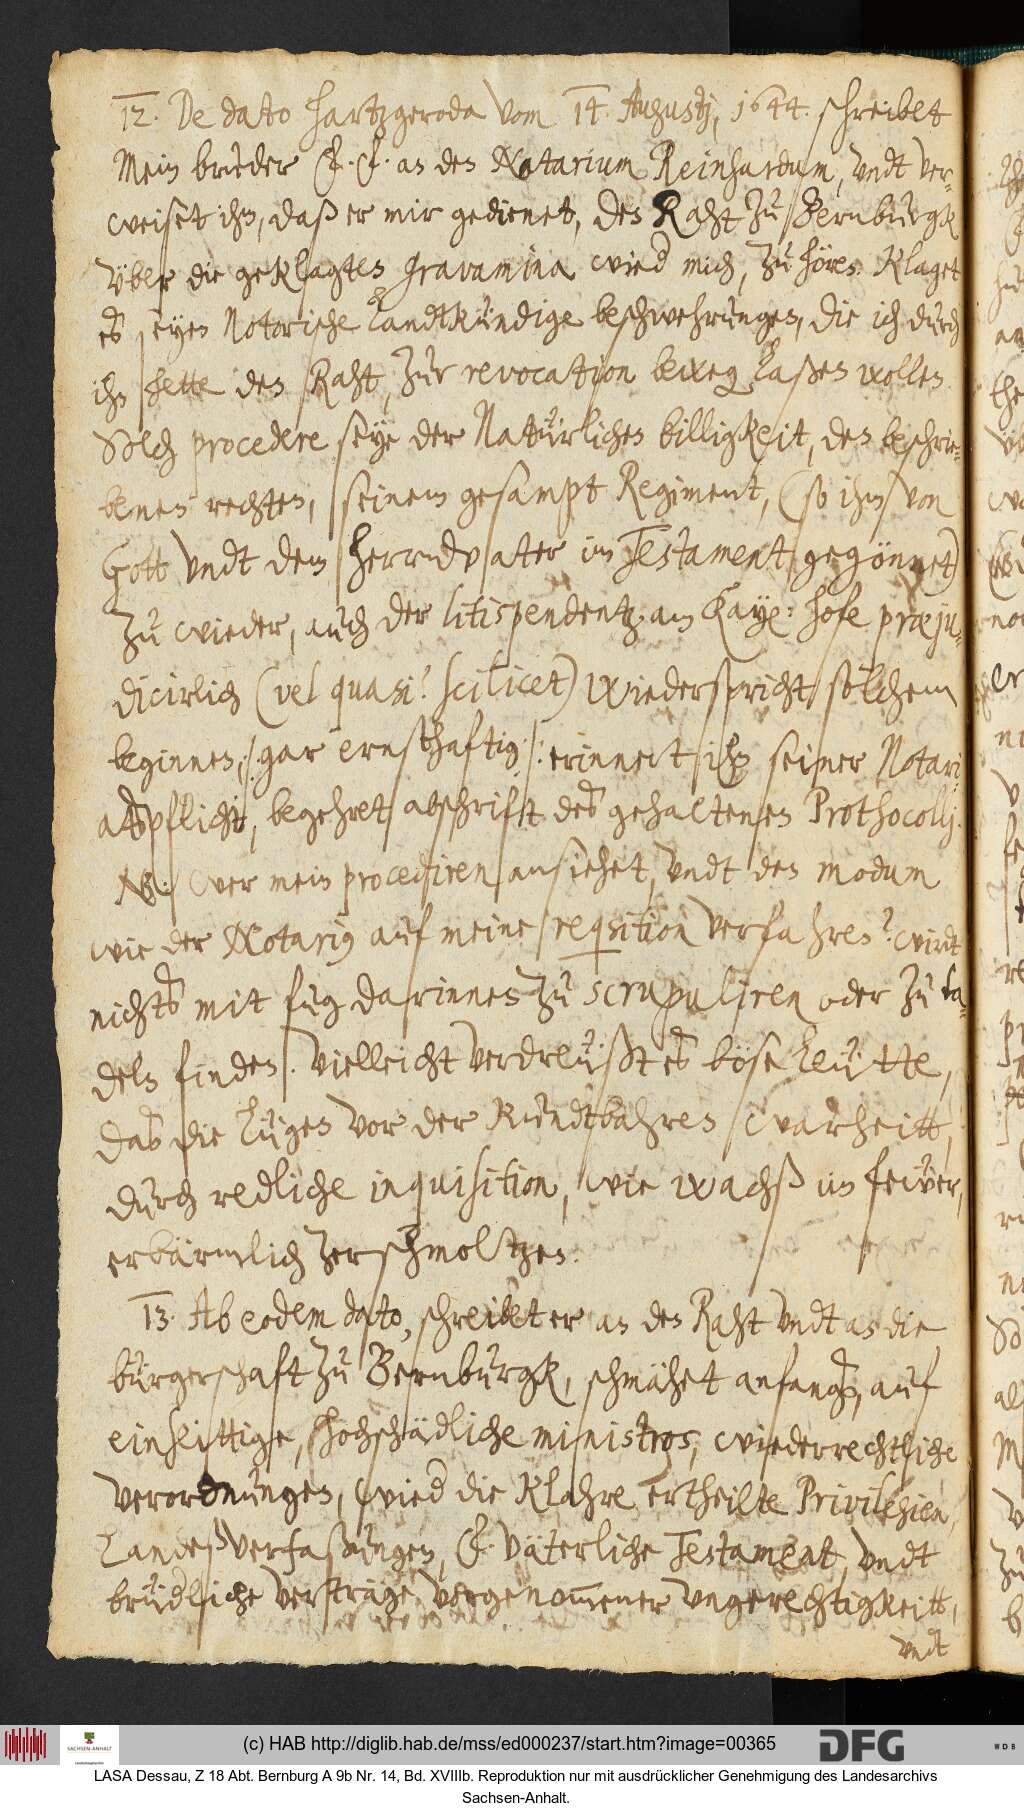 12. De dato Hartzgeroda vom 14. Augustj, 1644. schreibet
Mein bruder F. F. an den Notarium Reinhardum, undt ver-
weiset ihm, daß er mir gedienet, den Raht zu Bernburgk
über die geklagten gravamina wied mich, zu hören. Klaget
es seyen Notorische Landtkündige beschwehrungen, die ich durch
ihn hette den Raht, zur revocation beweg laßen wollen.
Solch procedere seye der Natürlichen billigkeit, den beschrie-
benen rechten, seinem gesampt Regiment, (so ihm von
Gott undt dem Herrnvater im Testament gegönnet)
zu wieder, auch der litispendentz am Kay: hofe præju-
dicirlich (vel quasi? scilicet) wiederspricht solchem
beginnen, /: gar ernsthaftig :/ erinnert ihn seiner Notari
atspflicht, begehret abschrift des gehaltenen Prothocollj.
NB: Wer mein procediren ansiehet, undt den modum
wie der Notarius auf meine reqsition verfahren? wirdt
nichts mit fug darinnen zu scrupuliren oder zu ta-
deln finden. Vielleicht verdreüßt es böse Leütte,
das die Lügen vor der Kundtbahren warheitt,
durch redliche inquisition, wie wachß im feüer,
erbärmlich zerschmoltzen.
13. Ab eodem dato, schreibet er an den Raht undt an die
bürgerschaft zu Bernburgk, schmähet anfangs, auf
einseittige, hochschädliche ministros, wiederrechtliche
verordnungen, wied die Klahre ertheilte Privilegien,
Landesverfaßungen, F. Väterliche Testament, undt
brüdliche verträge vorgenommener ungerechtigkeitt,
undt
(c) HAB http://diglib.hab.de/mss/ed000237/start.htm?image=00365
SACHSEN-ANHALT
DFG
WDB
LASA Dessau, Z 18 Abt. Bernburg A 9b Nr. 14, Bd. XVIIIb. Reproduktion nur mit ausdrücklicher Genehmigung des Landesarchivs
Sachsen-Anhalt.